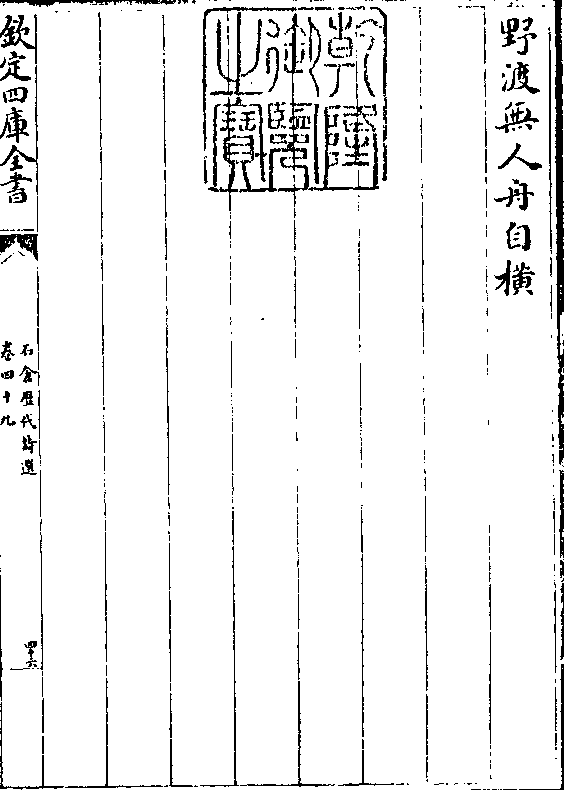 野渡無人舟自橫
乾隆
御覽
之寶
欽定四庫全書
石倉歷代詩選
卷四十九
四十六